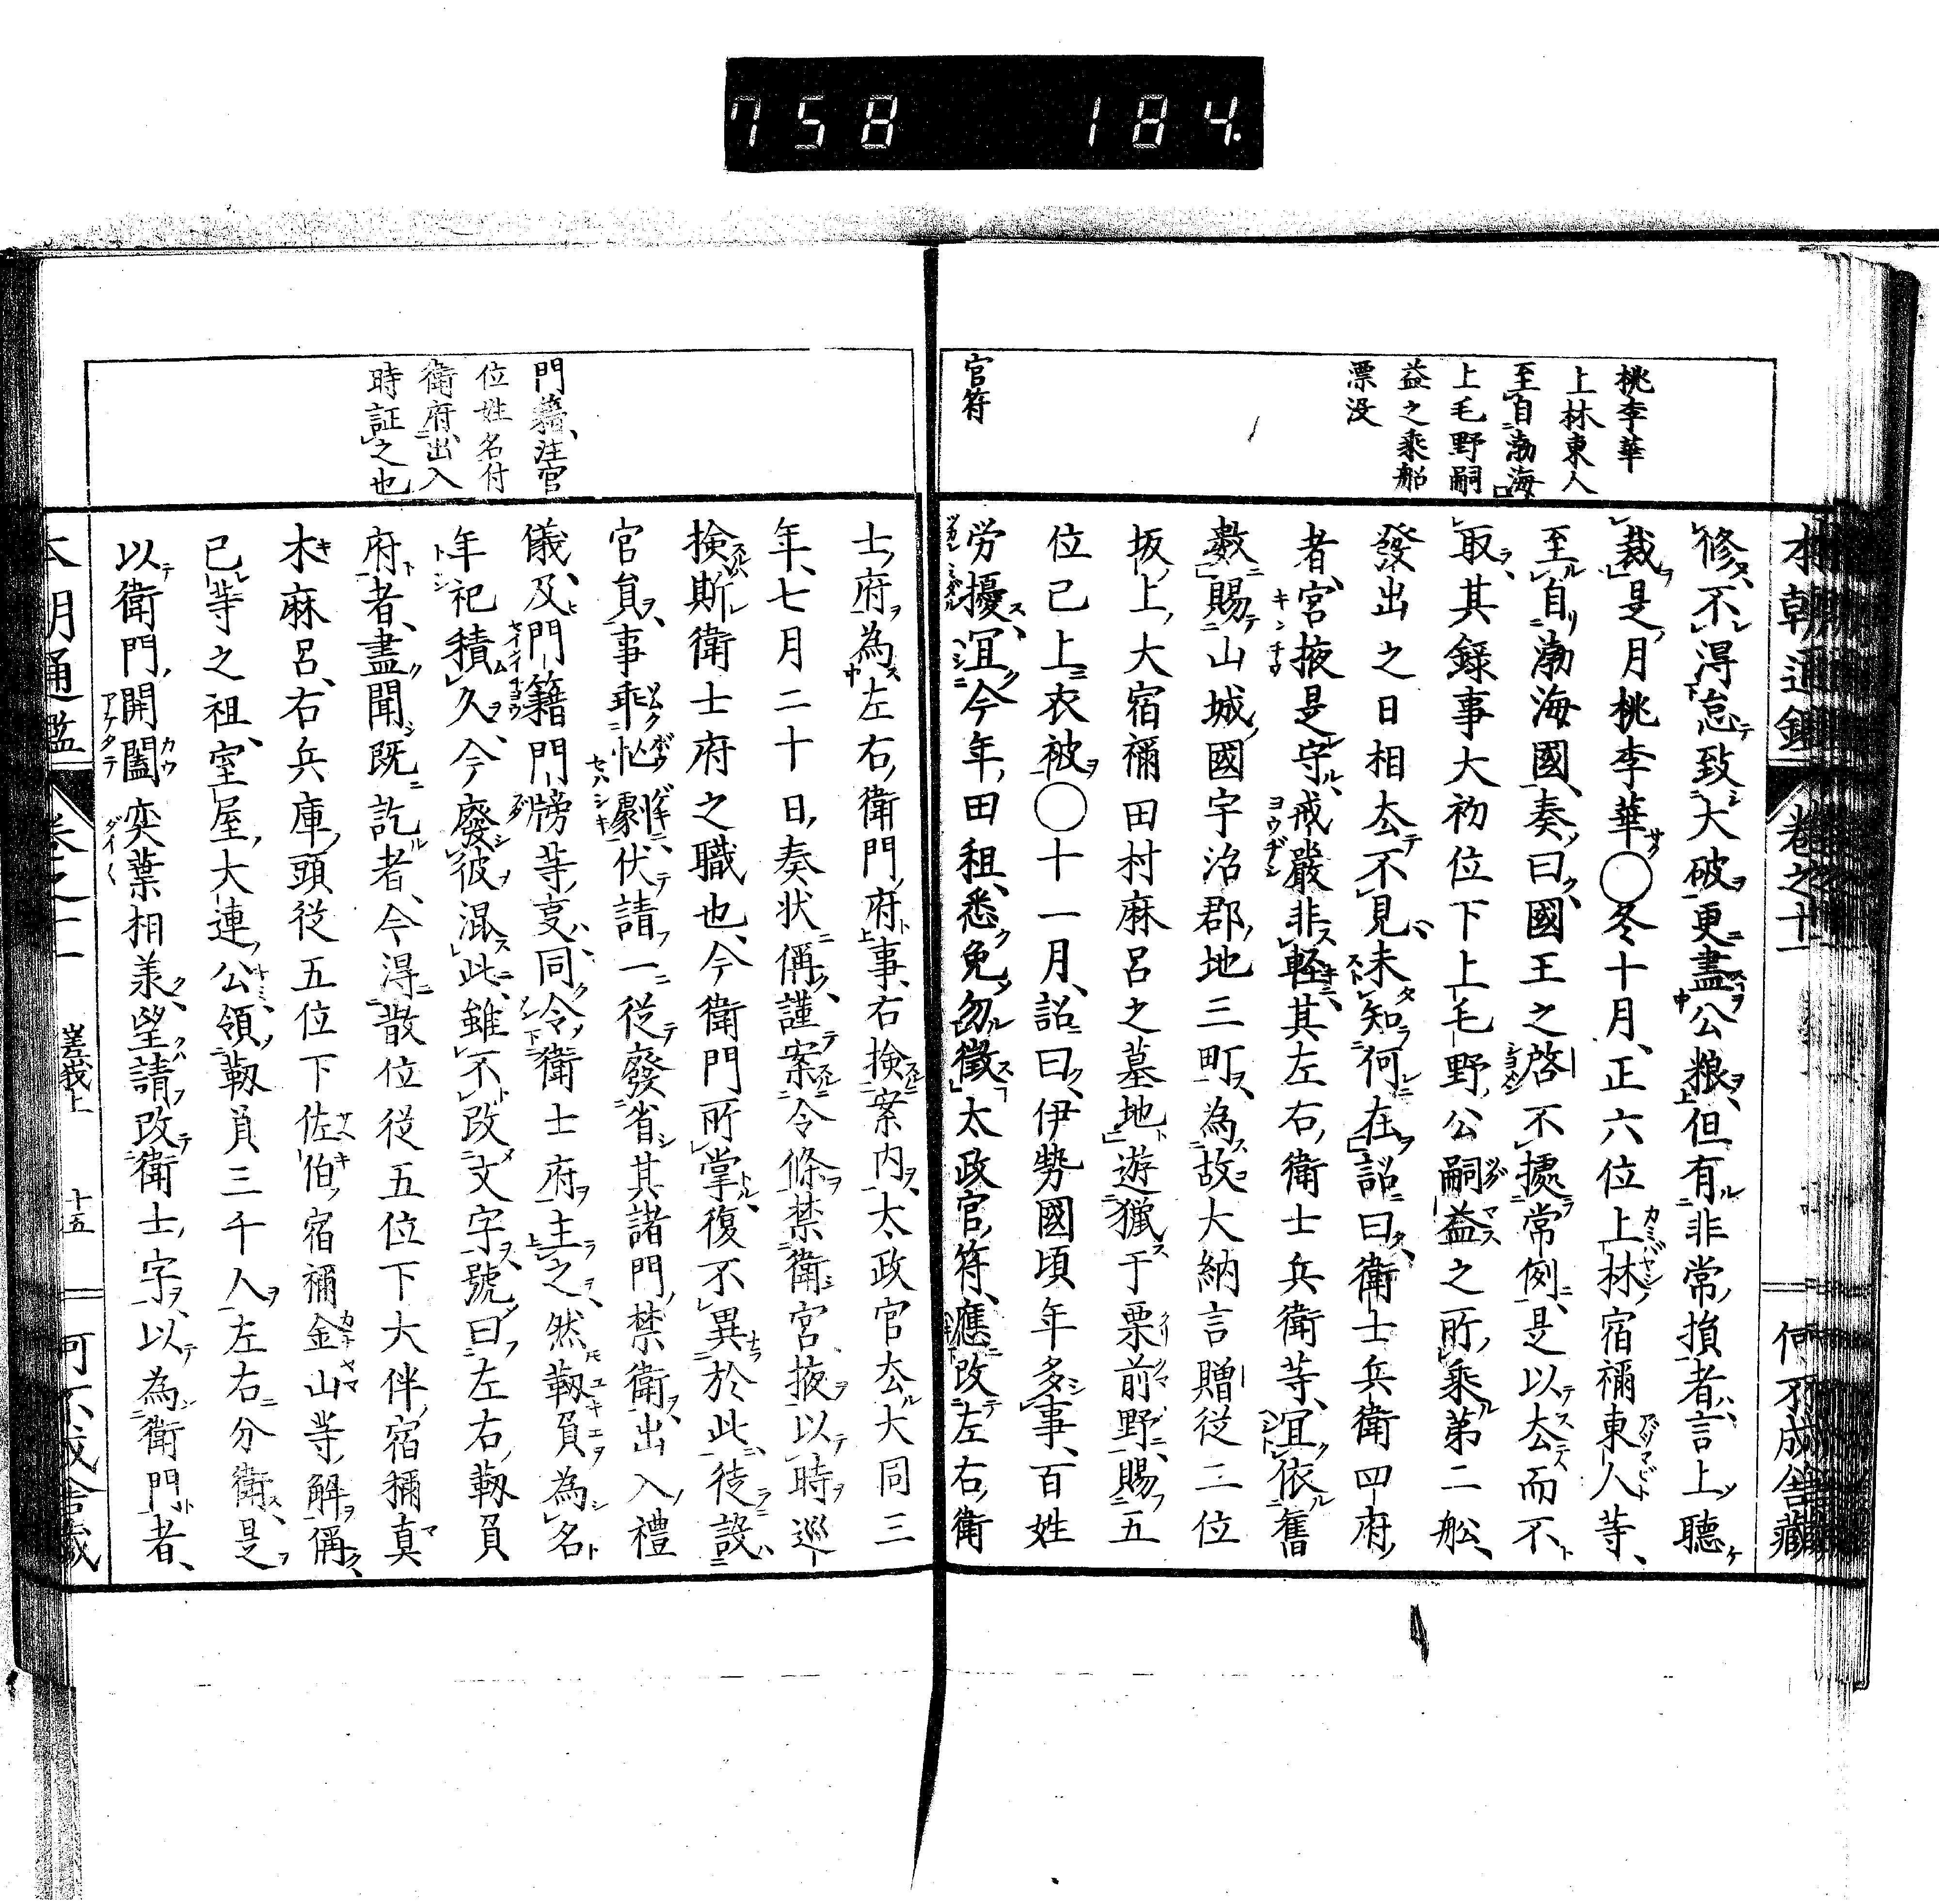 758 184.
本朝通鑑 卷之十 何不成舍藏
桃李華
上林東人
至自渤海
上毛野嗣
益之乘船
漂没
官符
修不得怠致大破更盡公粮但有非常損者言上聽
裁是月桃李華〇冬十月正六位上林宿禰東人等
至自渤海國奏曰國王之啓不據常例是以去而不
取其錄事大初位下上毛野公嗣益之所乘第二舩
發出之日相去不見未知何在詔曰衛士兵衛四府
者宮掖是守戒嚴非輕其左右衛士兵衛等宜依舊
數賜山城國宇治郡地三町為故大納言贈従二位
坂上大宿禰田村麻呂之墓地遊獵于栗前野賜五
位已上衣被〇十一月詔曰伊勢國頃年多事百姓
労擾宜今年田租悉免勿徵太政官符應改左右衛
門籍注官
位姓名付
衛府出入
時証之也
士府為左右衛門府事右撿案内太政官去大同三
年七月二十日奏状偁謹案令條禁衛宮掖以時巡
撿斯衛士府之職也今衛門所掌復不異於此徒設
官員事乖怱劇伏請一従廢省其諸門禁衛出入禮
儀及門籍門牓等㕝同令衛士府主之然靱負為名
年祀積久今廢彼混此雖不改文字號曰左右靱負
府者盡聞既訖者今得散位従五位下大伴宿禰真
木麻呂右兵庫頭従五位下佐伯宿禰金山等解偁
已等之祖室屋大連公領靱負三千人左右分衛是
以衛門開闔奕葉相羕望請改衛士字以為衛門者
本朝通鑑 卷之十一 嵯峨上 十五 何不成舍藏